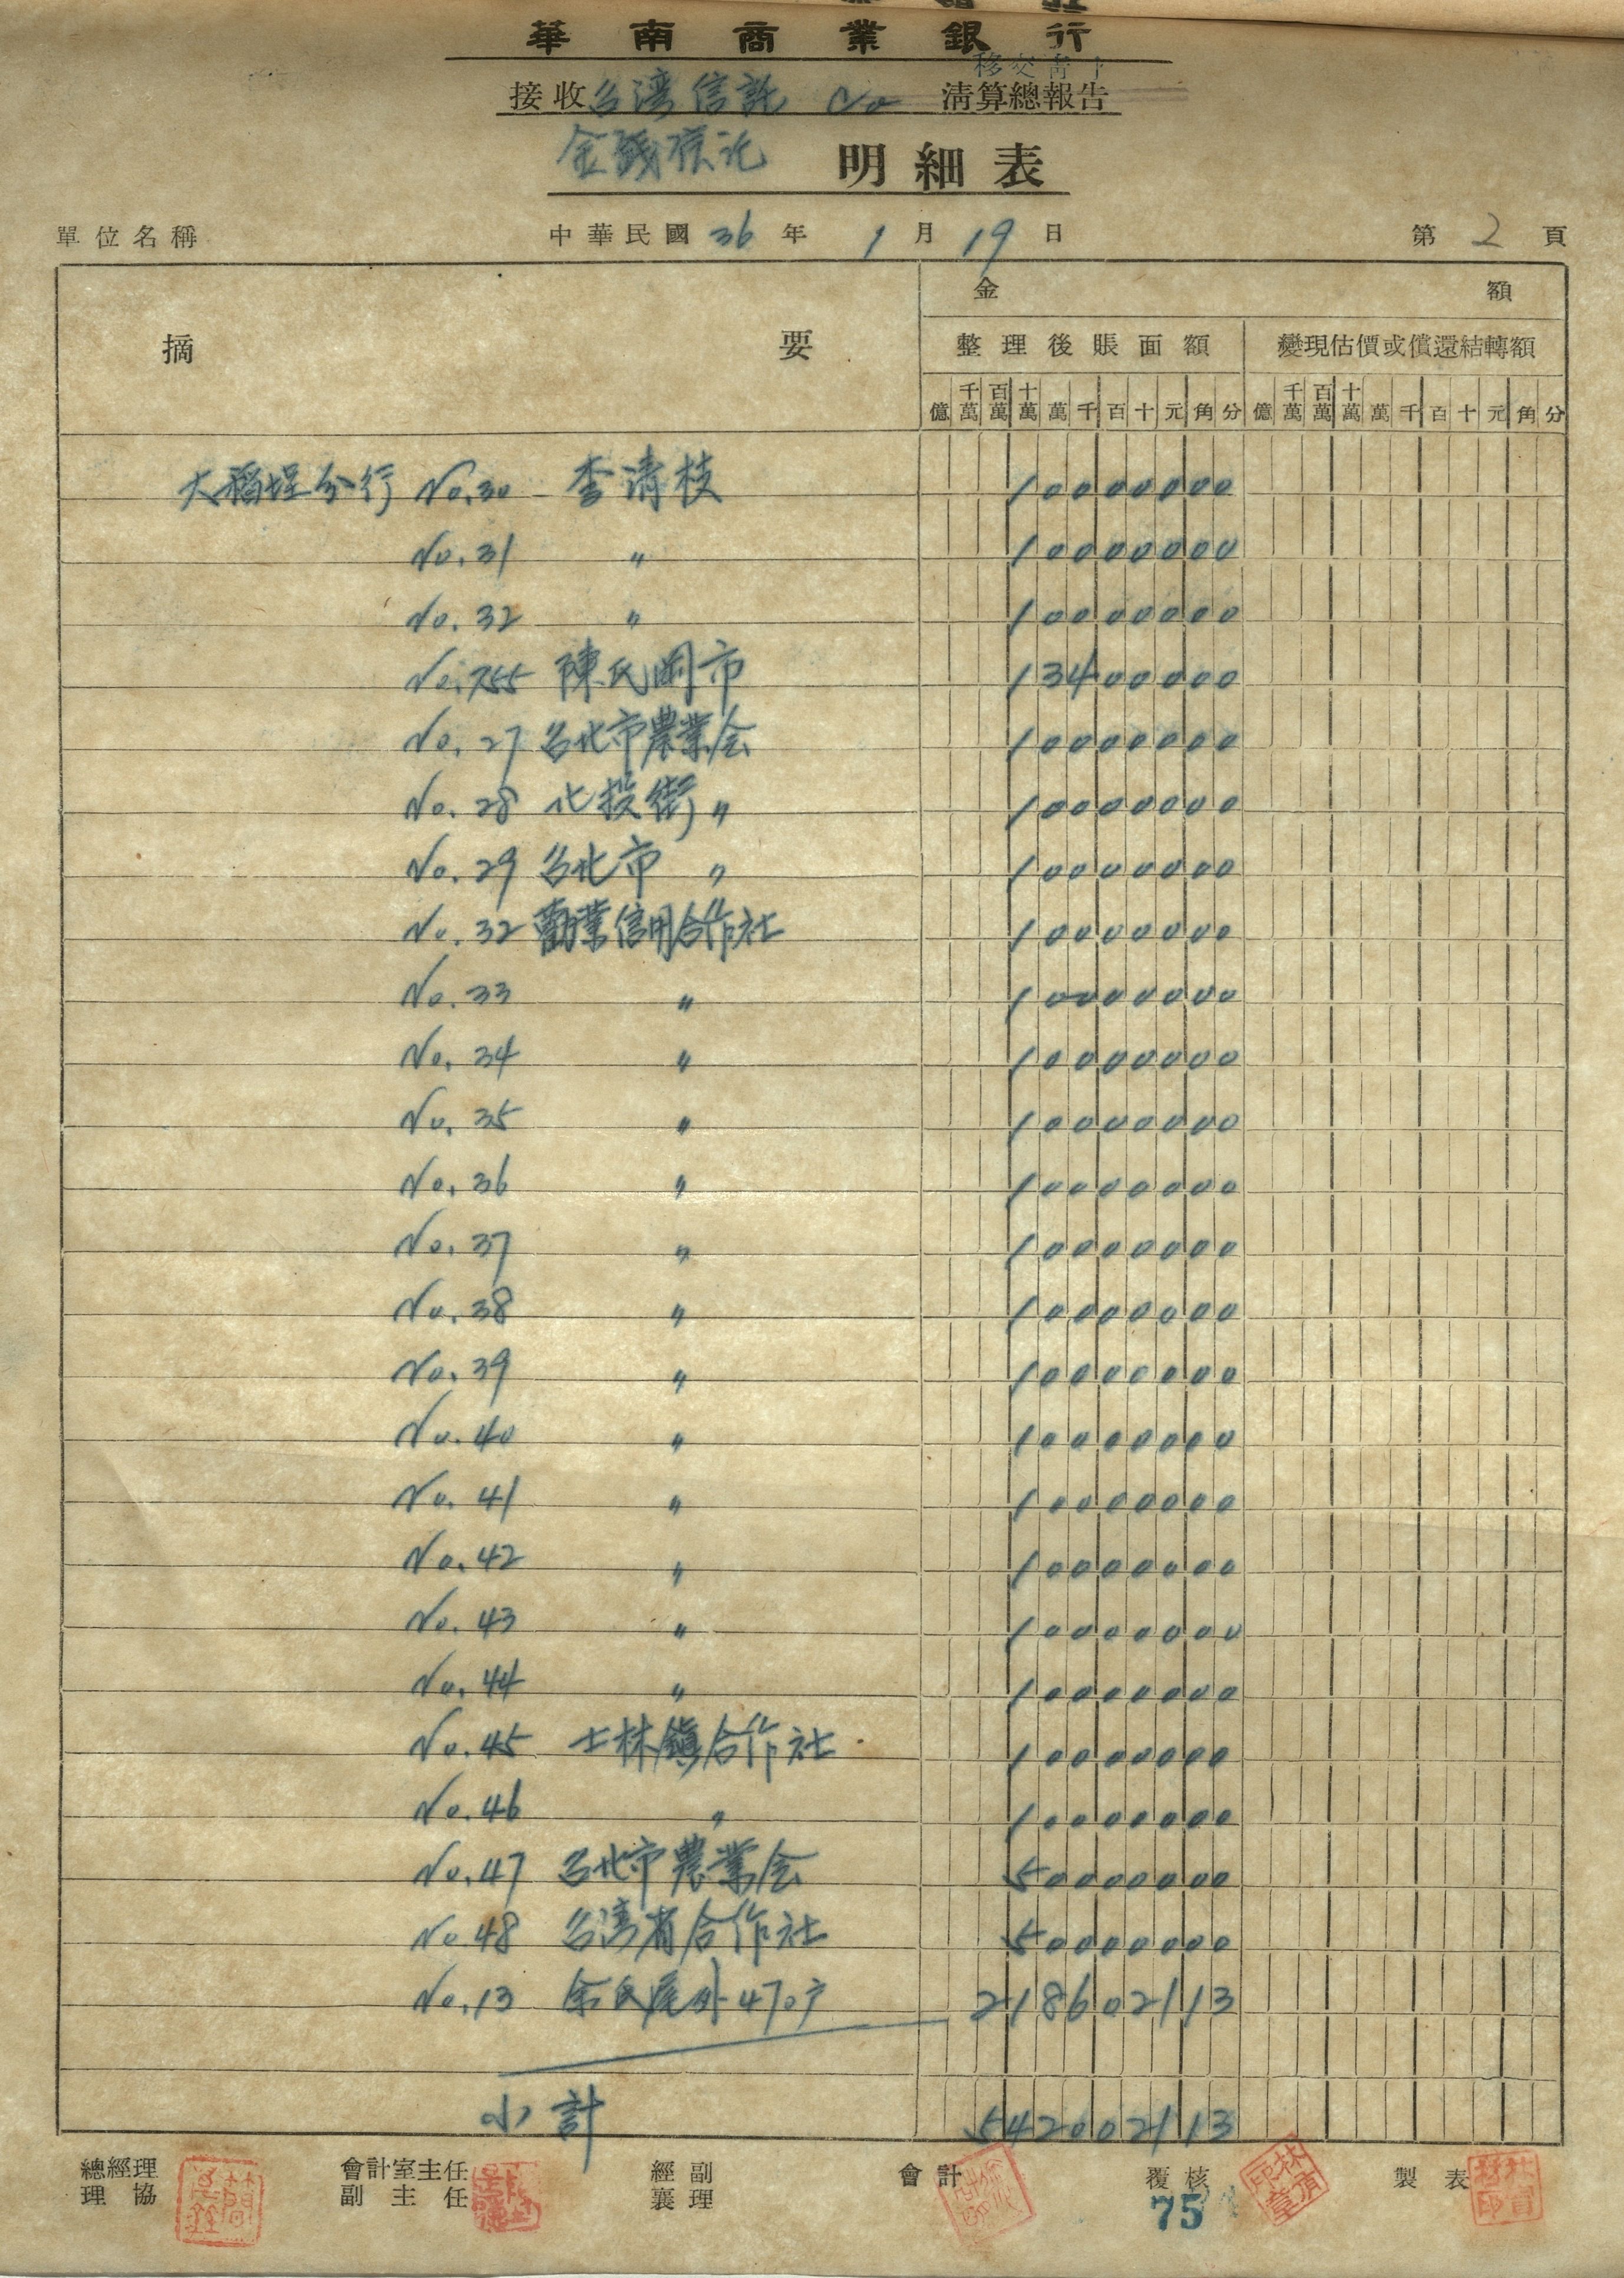 華南商業銀行
移交
接收台湾信託 Co 清算總報告
金錢信託 明細表
單位名稱 中華民國36年1月19日 第2頁
摘要 金額
整理後賬面額 變現估價或償還結轉額
億 千萬 百萬 十萬 萬 千 百 十 元 角 分 億 千萬 百萬 十萬 萬 千 百 十 元 角 分
大稻埕分行 No.30 李清枝 10000000
No.31 〃 10000000
No.32 〃 10000000
No.755 陳氏罔市 13400000
No.27 台北市農業会 10000000
No.28 北投街〃 10000000
No.29 台北市〃 10000000
No.32 勸業信用合作社 10000000
No.33 〃 10000000
No.34 〃 10000000
No.35 〃 10000000
No.36 〃 10000000
No.37 〃 10000000
No.38 〃 10000000
No.39 〃 10000000
No.40 〃 10000000
No.41 〃 10000000
No.42 〃 10000000
No.43 〃 10000000
No.44 〃 10000000
No.45 士林鎮合作社 10000000
No.46 〃 10000000
No.47 台北市農業会 50000000
No.48 台湾省合作社 50000000
No.13 余氏尾外470户 218602113
小計 542002113
總經理 會計室主任 經副 會計 覆核 製表
理協 副主任 襄理
75